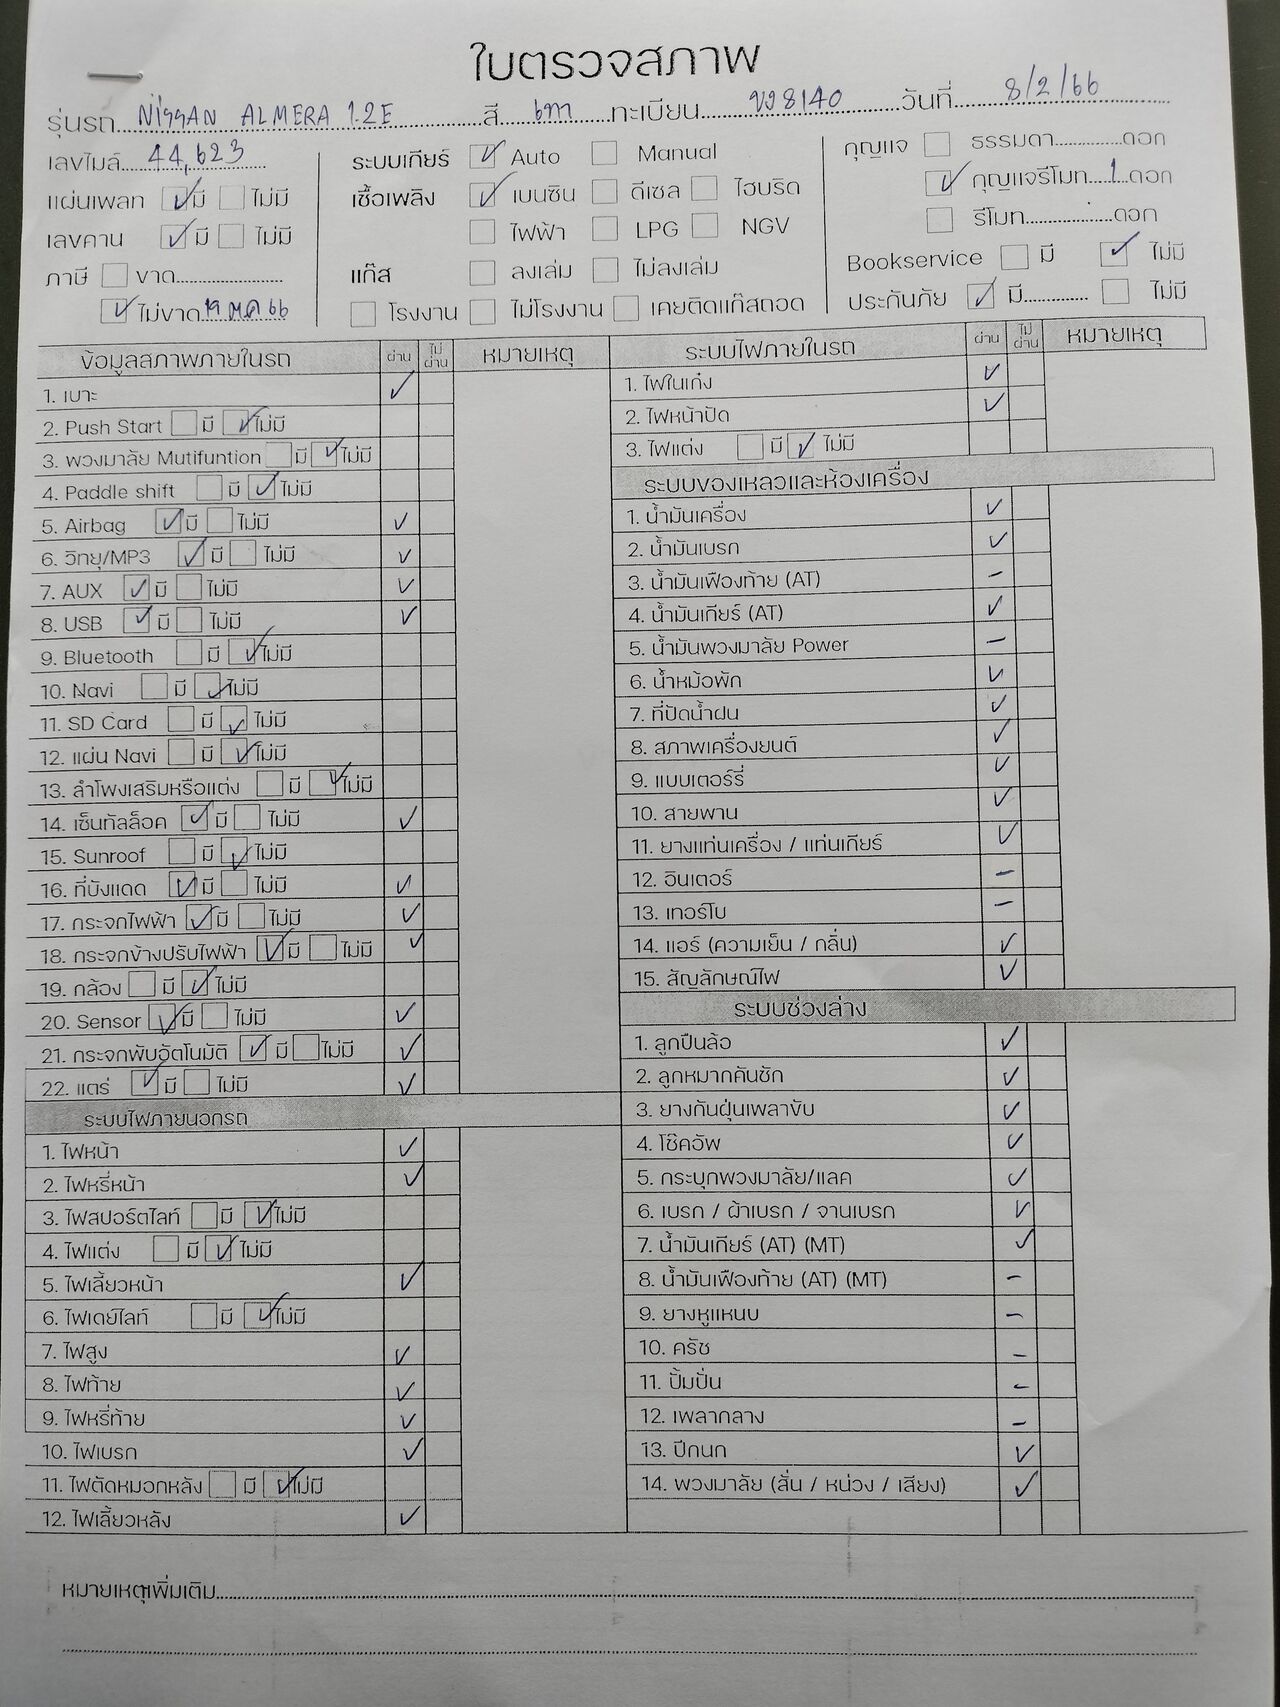 ใบตรวจสภาพ
รุ่นรถ NISSAN ALMERA 1.2E สี เทา ทะเบียน 8140 วันที่ 8/2/66
เลขไมล์ 44,623 ระบบเกียร์ ✓ Auto Manual กุญแจ ธรรมดา ดอก
แผ่นเพลท ✓ มี ไม่มี เชื้อเพลิง ✓ เบนซิน ดีเซล ไฮบริด ✓ กุญแจรีโมท 1 ดอก
เลขคาน ✓ มี ไม่มี ไฟฟ้า LPG NGV รีโมท ดอก
ภาษี ขาด แก๊ส ลงเล่ม ไม่ลงเล่ม Bookservice มี ✓ ไม่มี
✓ ไม่ขาด 19 ตค 66 โรงงาน ไม่โรงงาน เคยติดแก๊สถอด ประกันภัย ✓ มี ไม่มี
ข้อมูลสภาพภายในรถ ผ่าน ไม่ผ่าน หมายเหตุ
1. เบาะ ✓
2. Push Start มี ✓ ไม่มี
3. พวงมาลัย Mutifuntion มี ✓ ไม่มี
4. Paddle shift มี ✓ ไม่มี
5. Airbag ✓ มี ไม่มี ✓
6. วิทยุ/MP3 ✓ มี ไม่มี ✓
7. AUX ✓ มี ไม่มี ✓
8. USB ✓ มี ไม่มี ✓
9. Bluetooth มี ✓ ไม่มี
10. Navi มี ✓ ไม่มี
11. SD Card มี ✓ ไม่มี
12. แผ่น Navi มี ✓ ไม่มี
13. ลำโพงเสริมหรือแต่ง มี ✓ ไม่มี
14. เซ็นทัลล็อค ✓ มี ไม่มี ✓
15. Sunroof มี ✓ ไม่มี
16. ที่บังแดด ✓ มี ไม่มี ✓
17. กระจกไฟฟ้า ✓ มี ไม่มี ✓
18. กระจกข้างปรับไฟฟ้า ✓ มี ไม่มี ✓
19. กล้อง มี ✓ ไม่มี
20. Sensor ✓ มี ไม่มี ✓
21. กระจกพับอัตโนมัติ ✓ มี ไม่มี ✓
22. แตร่ ✓ มี ไม่มี ✓
ระบบไฟภายนอกรถ
1. ไฟหน้า ✓
2. ไฟหรี่หน้า ✓
3. ไฟสปอร์ตไลท์ มี ✓ ไม่มี
4. ไฟแต่ง มี ✓ ไม่มี
5. ไฟเลี้ยวหน้า ✓
6. ไฟเดย์ไลท์ มี ✓ ไม่มี
7. ไฟสูง ✓
8. ไฟท้าย ✓
9. ไฟหรี่ท้าย ✓
10. ไฟเบรก ✓
11. ไฟตัดหมอกหลัง มี ✓ ไม่มี
12. ไฟเลี้ยวหลัง ✓
ระบบไฟภายในรถ ผ่าน ไม่ผ่าน หมายเหตุ
1. ไฟในเก๋ง ✓
2. ไฟหน้าปัด ✓
3. ไฟแต่ง มี ✓ ไม่มี
ระบบของเหลวและห้องเครื่อง
1. น้ำมันเครื่อง ✓
2. น้ำมันเบรก ✓
3. น้ำมันเฟืองท้าย (AT) -
4. น้ำมันเกียร์ (AT) ✓
5. น้ำมันพวงมาลัย Power -
6. น้ำหม้อพัก ✓
7. ที่ปัดน้ำฝน ✓
8. สภาพเครื่องยนต์ ✓
9. แบบเตอร์รี่ ✓
10. สายพาน ✓
11. ยางแท่นเครื่อง / แท่นเกียร์ ✓
12. อินเตอร์ -
13. เทอร์โบ -
14. แอร์ (ความเย็น / กลิ่น) ✓
15. สัญลักษณ์ไฟ ✓
ระบบช่วงล่าง
1. ลูกปืนล้อ ✓
2. ลูกหมากคันชัก ✓
3. ยางกันฝุ่นเพลาขับ ✓
4. โช๊คอัพ ✓
5. กระบุกพวงมาลัย/แลค ✓
6. เบรก / ผ้าเบรก / จานเบรก ✓
7. น้ำมันเกียร์ (AT) (MT) ✓
8. น้ำมันเฟืองท้าย (AT) (MT) -
9. ยางหูแหนบ -
10. ครัช -
11. ปั้มปั่น -
12. เพลากลาง -
13. ปีกนก ✓
14. พวงมาลัย (สั่น / หน่วง / เสียง) ✓
หมายเหตุเพิ่มเติม